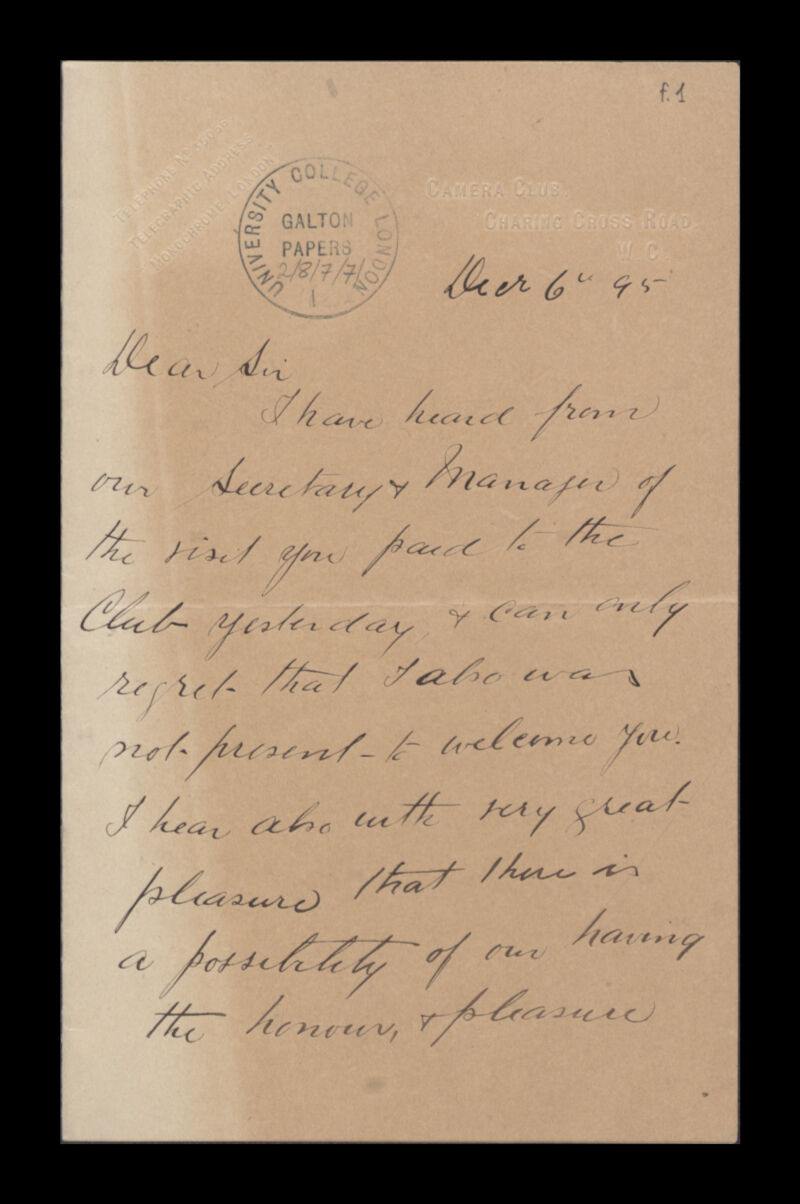 f.1
TELEPHONE No
TELEGRAPHIC ADDRESS
MONOCHROME LONDON
UNIVERSITY COLLEGE LONDON
GALTON
PAPERS
2/8/7/7/
1
CAMERA CLUB.
CHARING CROSS ROAD.
W.C.
Decr 6th 95
Dear Sir
I have heard from
our Secretary & Manager of
the visit you paid to the
Club yesterday, & can only
regret that I also was
not present to welcome you.
I hear also with very great
pleasure that there is
a possibility of our having
the honour, & pleasure